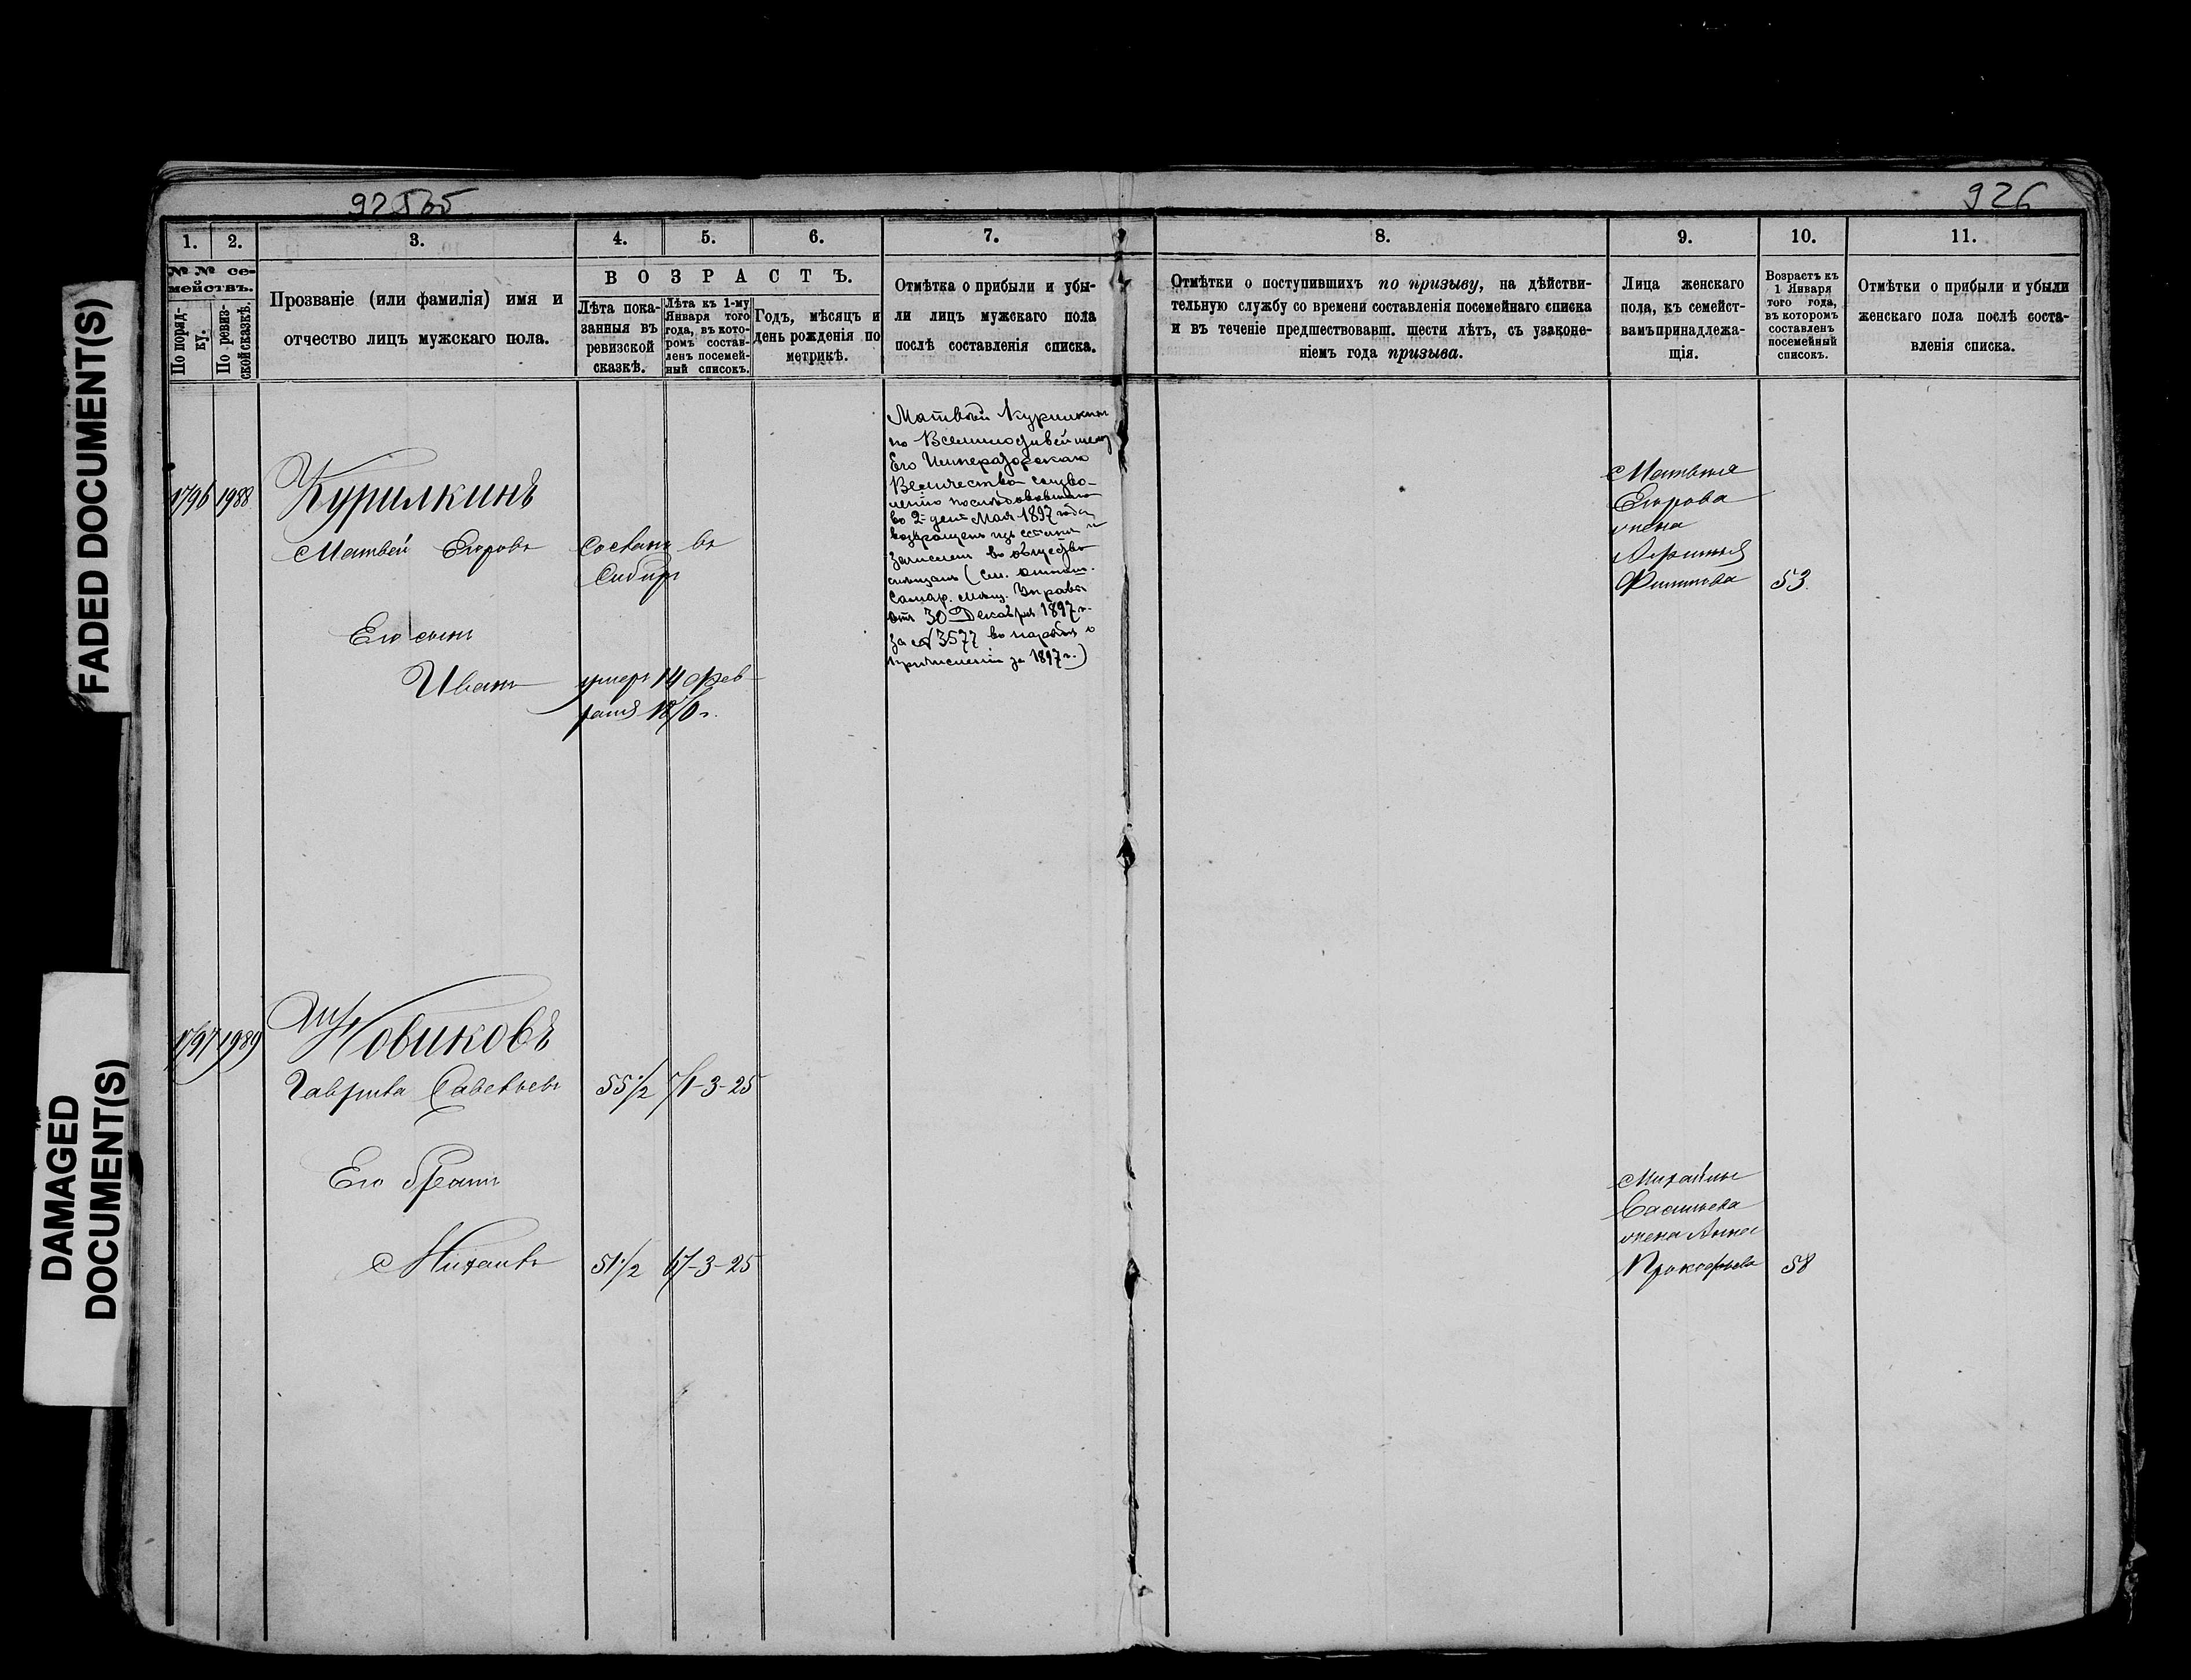 FADED DOCUMENT(S)
DAMAGED
DOCUMENT(S)
925об
926
1.
2.
3.
4.
5.
6.
7.
8.
9.
10.
11.
№ № се-
мействъ.
По поряд-
ку.
По ревиз-
ской сказкѣ.
Прозваніе (или фамилія) имя и
отчество лицъ мужскаго пола.
ВОЗРАСТЪ.
Лѣта пока-
занныя въ
ревизской
сказкѣ.
Лѣта къ 1-му
Января того
года, въ кото-
ромъ состав-
ленъ посемей-
ный списокъ.
Годъ, мѣсяцъ и
день рожденія по
метрикѣ.
Отмѣтка о прибыли и убы-
ли лицъ мужскаго пола
послѣ составленія списка.
Отмѣтки о поступившихъ по призыву, на дѣйстви-
тельную службу со времени составленія посемейнаго списка
и въ теченіе предшествовавш. шести лѣтъ, съ узаконе-
ніемъ года призыва.
Лица женскаго
пола, къ семейст-
вамъ принадлежа-
щія.
Возрастъ къ
1 Января
того года,
въ которомъ
составленъ
посемейный
списокъ.
Отмѣтки о прибыли и убыли
женскаго пола послѣ соста-
вленія списка.
1796
1988
Курилкинъ
Матвей Егоровъ
Сосланъ въ
Сибирь
Его сынъ
Иванъ
умеръ 14 Фев-
раля
Матвѣй Курилкинъ
по Всемилостивейшему
Его Императорскаго
Величества соизво-
ленію последовавшаго
во 2 день Мая 1897 года
возвращенъ изъ ссылки и
записанъ въ общество
мещанъ (см. отнош.
Самар. Мѣщ. Управы
отъ 30 Декабря 1897 г.
за № 3577 въ нарядѣ о
причисленіи за 1897 г.)
Матвѣя
Егорова
жена
Филипова
53
1797
1989
Новиковъ
Гаврила Савельевъ
55 1/2
71-3-25
Его братъ
Михаилъ
51 1/2
67-3-25
Михайлы
жена Анна
Прокофьева
58